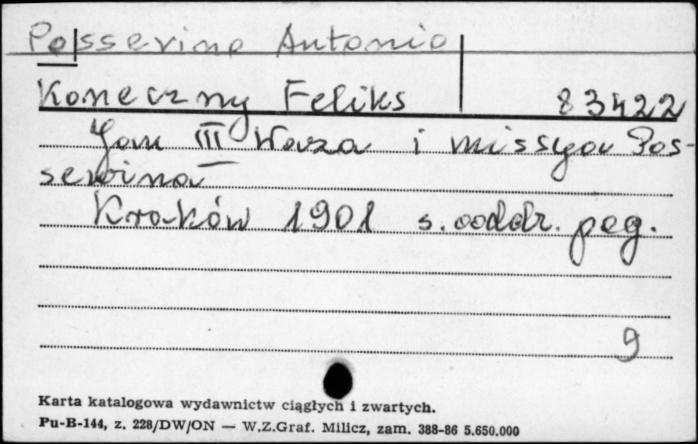 Possevino Antonio
Koneczny Feliks 83422
Jan III Waza i missya Pos-
sewina
Kraków 1901 s. oddr. pag.
9
Karta katalogowa wydawnictw ciągłych i zwartych.
Pu-B-144, z. 228/DW/ON — W.Z.Graf. Milicz, zam. 388-86 5.650.000